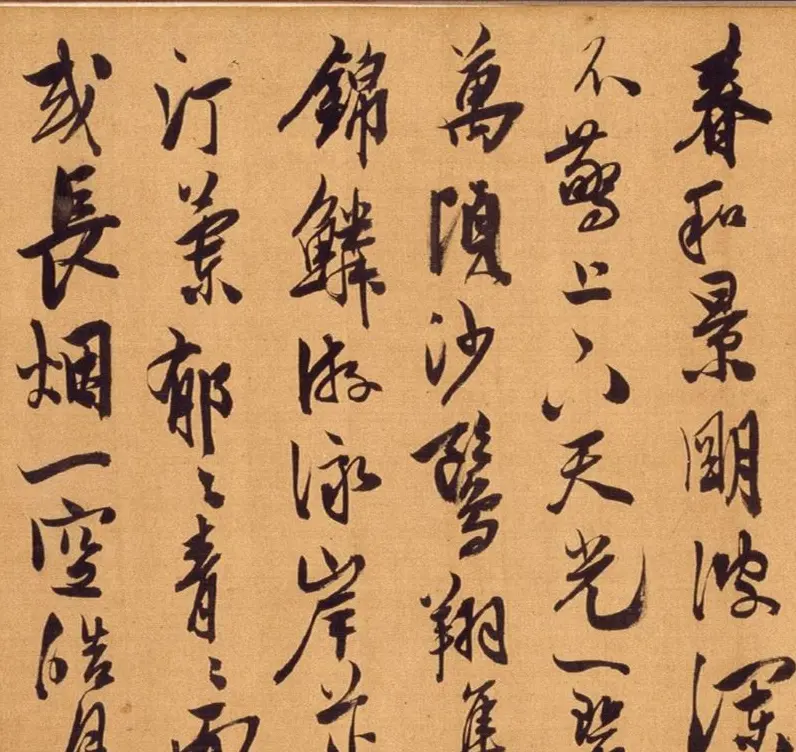 春和景明波瀾
不驚上下天光一碧
萬頃沙鷺翔集
錦鱗游泳岸芷
汀蘭郁〻青〻而
或長烟一空皓月